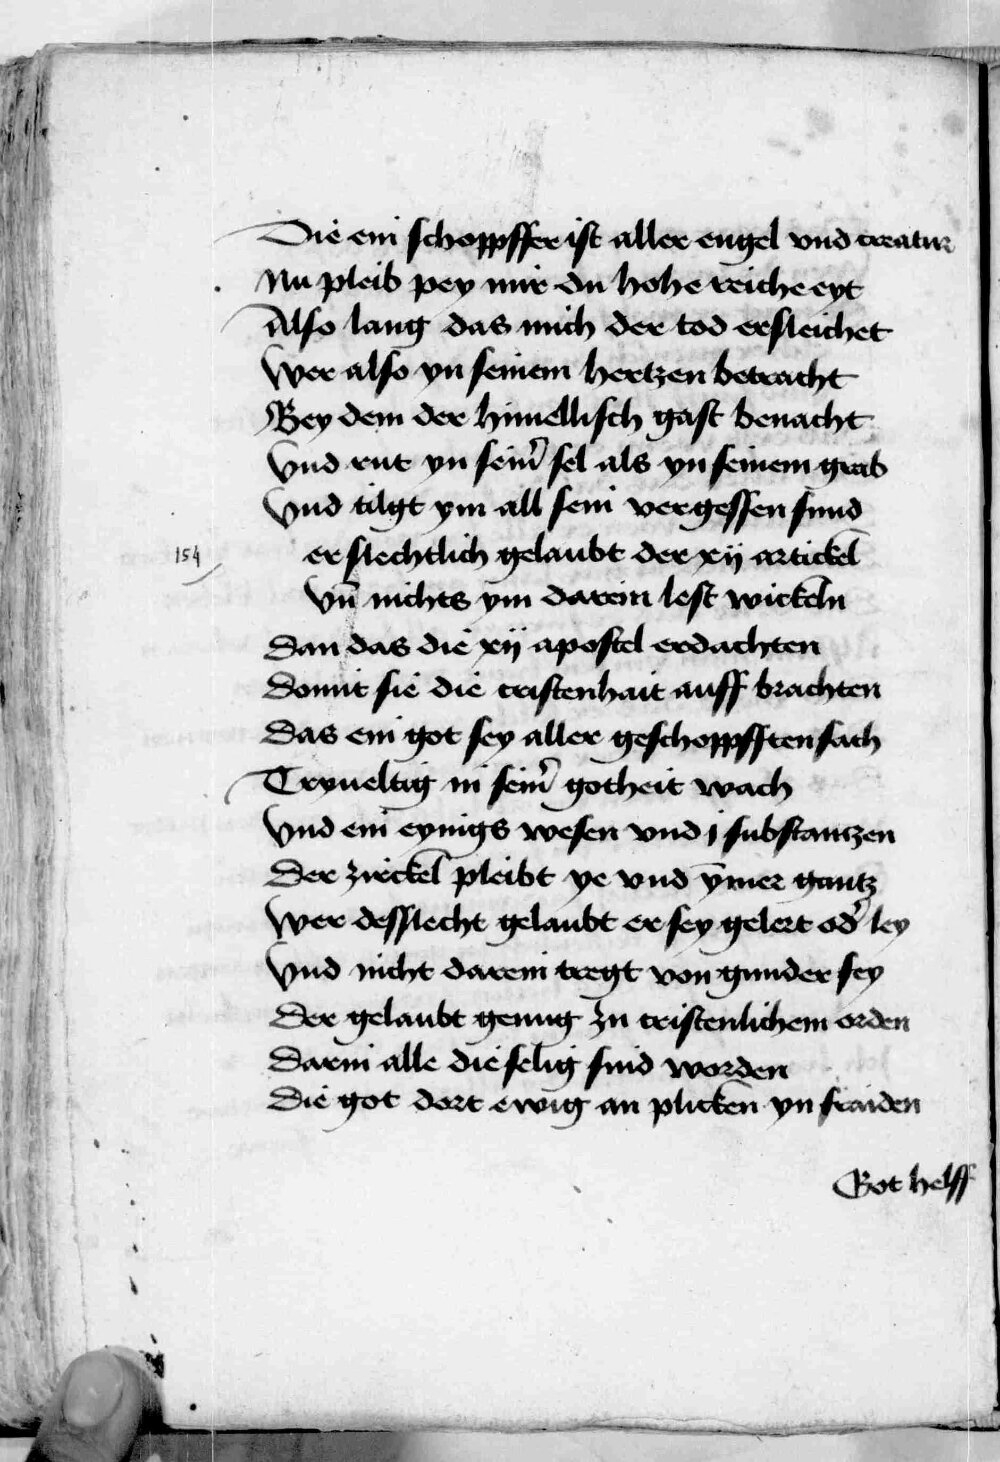 Die ein schoppffer ist aller engel vnd creatur
Nu pleib pey mir du hohe reiche eyt
Also lang das mich der tod ersleichet
Wer also yn seinem hertzen betracht
Bey dem der himellisch gast benacht
Vnd rut yn seim̄ sel als yn seinem grab
Vnd tilgt ym all sein vergessen sund
154
er slechtlich gelaubt der xij artickel
Vn̄ nichts ym darein lest wickeln
Dan das die xij apostel erdachten
Domit sie die cristenhait auff brachten
Das ein got sey aller geschoppfften sach
Tryueltig in seim̄ gotheit wach
Vnd ein eynigs wesen vnd j substantzen
Der zirckel pleibt ye vnd ȳmer gantz
Wer desslecht gelaubt er sey gelert od̄ ley
Vnd nicht darein tregt von gunder sey
Der gelaubt genug zu cristenlichem orden
Darin alle die selig sind worden
Die got dort ewig an plicken yn fraiden
Got helff